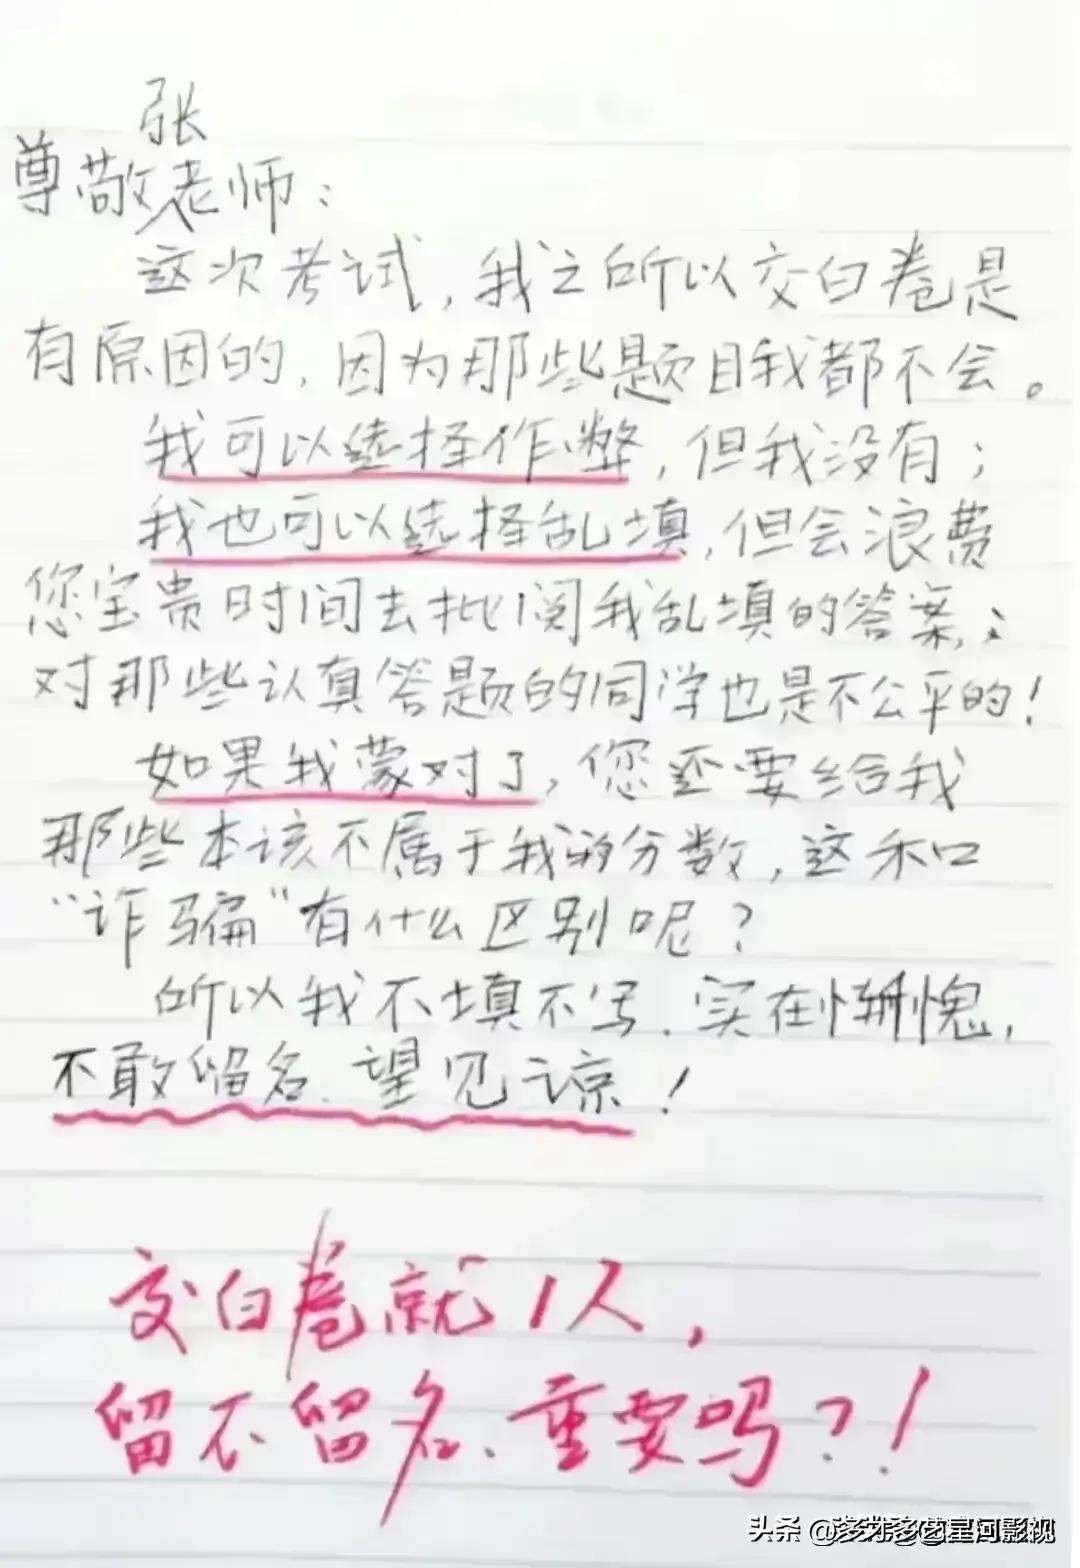 尊敬张老师：
这次考试，我之所以交白卷是
有原因的，因为那些题目我都不会。
我可以选择作弊，但我没有；
我也可以选择乱填，但会浪费
您宝贵时间去批阅我乱填的答案；
对那些认真答题的同学也是不公平的！
如果我蒙对了，您还要给我
那些本该不属于我的分数，这和
“诈骗”有什么区别呢？
所以我不填不写．实在惭愧，
不敢留名．望见谅！
交白卷就1人，
留不留名、重要吗？！
头条 @多才多艺星河影视